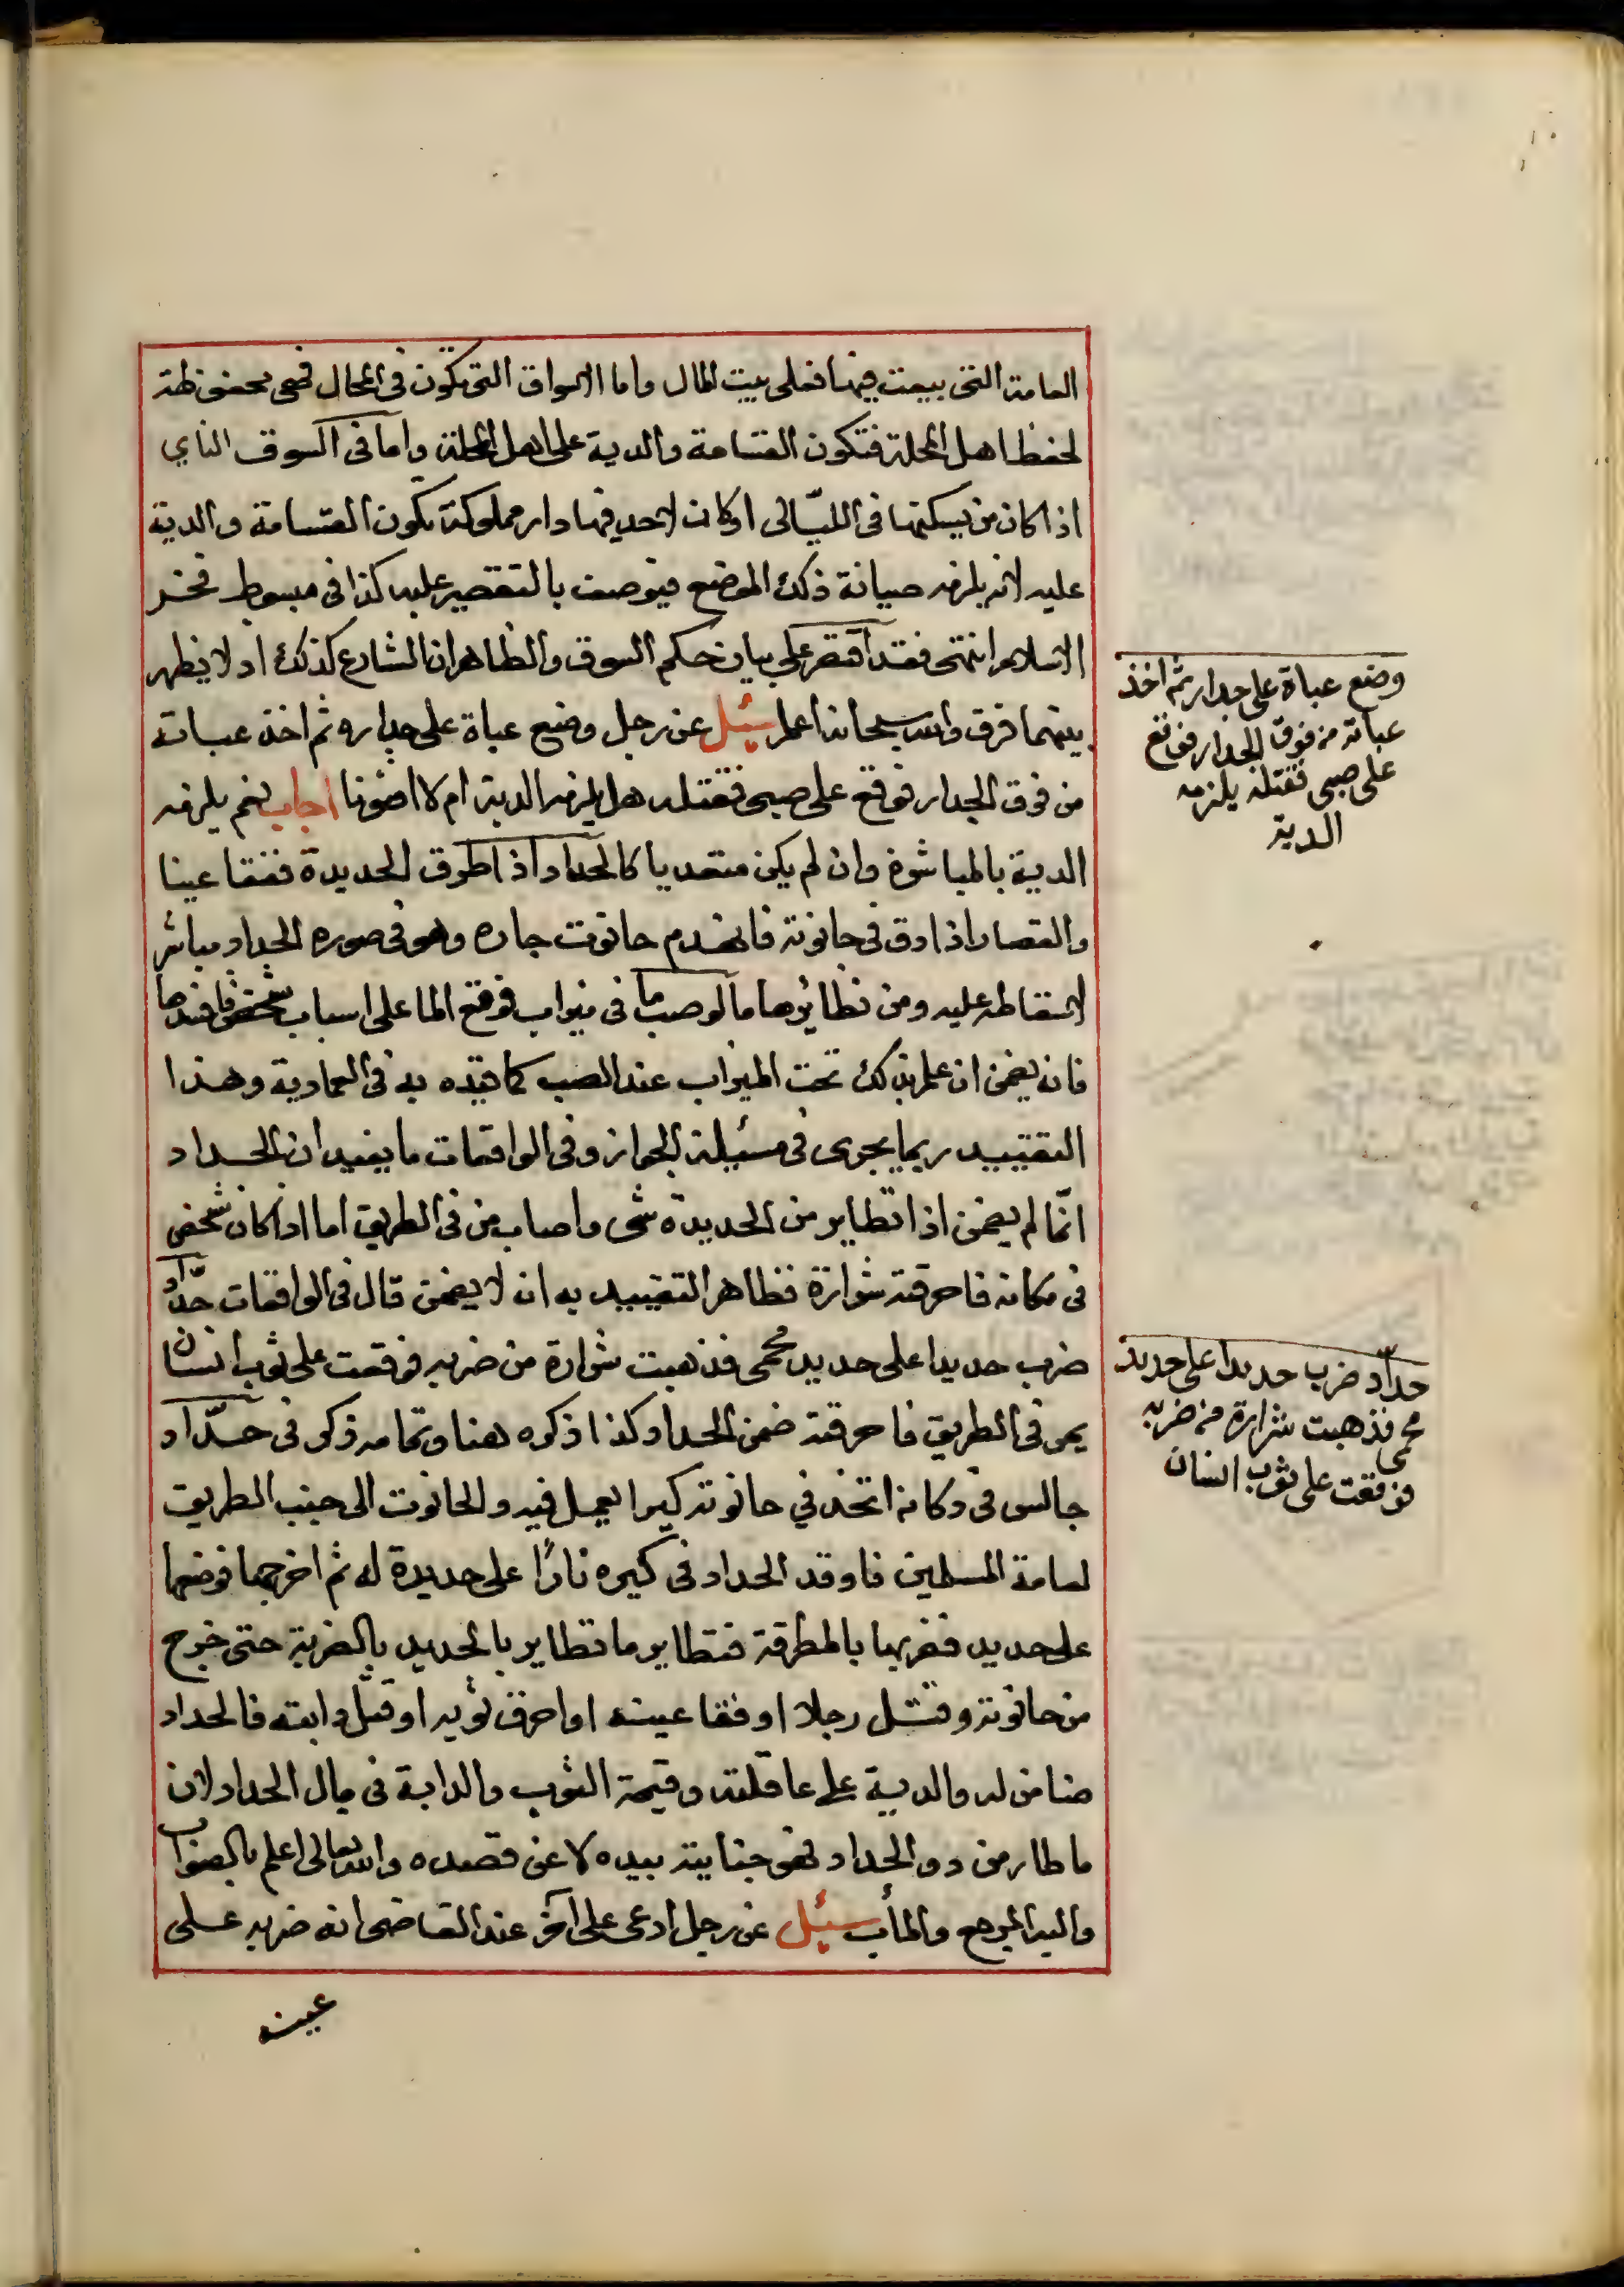 العامة التى بيعت فيها فعلى بيت المال واما الاسواق التى تكون فى المحال فهى محفوظة
لحفظ اهل المحلة فتكون القسامة والدية على اهل المحلة واما فى السوق النايي
اذا كان من يسكنها فى الليّالى اوكان لاحد فيها دار مملوكة تكون القسامة والدية
عليه لانه يلزمه صيانة ذلك الموضع فيوصف بالتقصير عليه كذا فى مبسوط فخر
الاسلام انتهى فقد اقتصر على بيان حكم السوق والظاهر ان الشارع كذلك اذ لا يظهر
بينهما فرق والله سبحانه اعلم سئيل عن رجل وضع عباة على جداره ثم اخذ عباته
من فوق الجدار فوقع على صبى فقتله هل يلزمه الدية ام لا افتونا اجاب نعم يلزمه
الدية بالمباشرة وان لم يكن متعديا كالحداد اذا طرق الحديدة ففقا عينا
والقصار اذا دق فى حانوته فانهدم حانوت جاره وهو فى صوره الجدار مباشر
لاسقاطه عليه ومن نظائرها ما لو صب ما فى ميزاب فوقع الما على اسباب شخص فافسدها
فانه يضمن ان علم بذلك تحت الميزاب عند الصب كما قيده به فى العمادية وهذا
التقييد ربما يجرى فى مسئيلة الجدار وفى الواقعات ما يفيد ان الحداد
انّما لم يضمن اذا تطاير من الحديدة شى واصاب من فى الطريق اما اذا كان شخص
فى مكانه فاحرقته شرارة فظاهر التقييد به انه لا يضمن قال فى الواقعات حدّاد
ضرب حديدا على حديد محمى فذهبت شرارة من ضربه فوقعت على ثوب انسان
يمر فى الطريق فاحرقته ضمن الحداد كذا ذكره هنا وتمامه ذكر فى حدّاد
جالس فى دكانه اتخذ في حانوته كيرا يعمل فيه والحانوت الى جنب الطريق
لعامة المسلمين فاوقد الحداد فى كيره نارًا على حديدة له ثم اخرجها فوضعها
على حديد فضربها بالمطرقة فتطاير ما تطاير بالحديد بالضربة حتى خرج
من حانوته وقتل رجلا او فقا عينه او احرق ثوبه او قتل دابته فالحداد
ضامن له والدية على عاقلته وقيمة الثوب والدابة فى مال الحداد لان
ما طار من دق الحداد فهو جنايته بيده لا عن قصده والله تعالى اعلم بالصواب
واليه المرجع والمأب سئيل عن رجل ادعى على آخر عند القاضى انه ضربه على
عينه
وضع عباة على جدار ثم اخذ
عباته من فوق الجدار فوقع
على صبى فقتله يلزمه
الدية
حدّاد ضرب حديدا على حديد
محمى فذهبت شرارة من ضربه
فوقعت على ثوب انسان